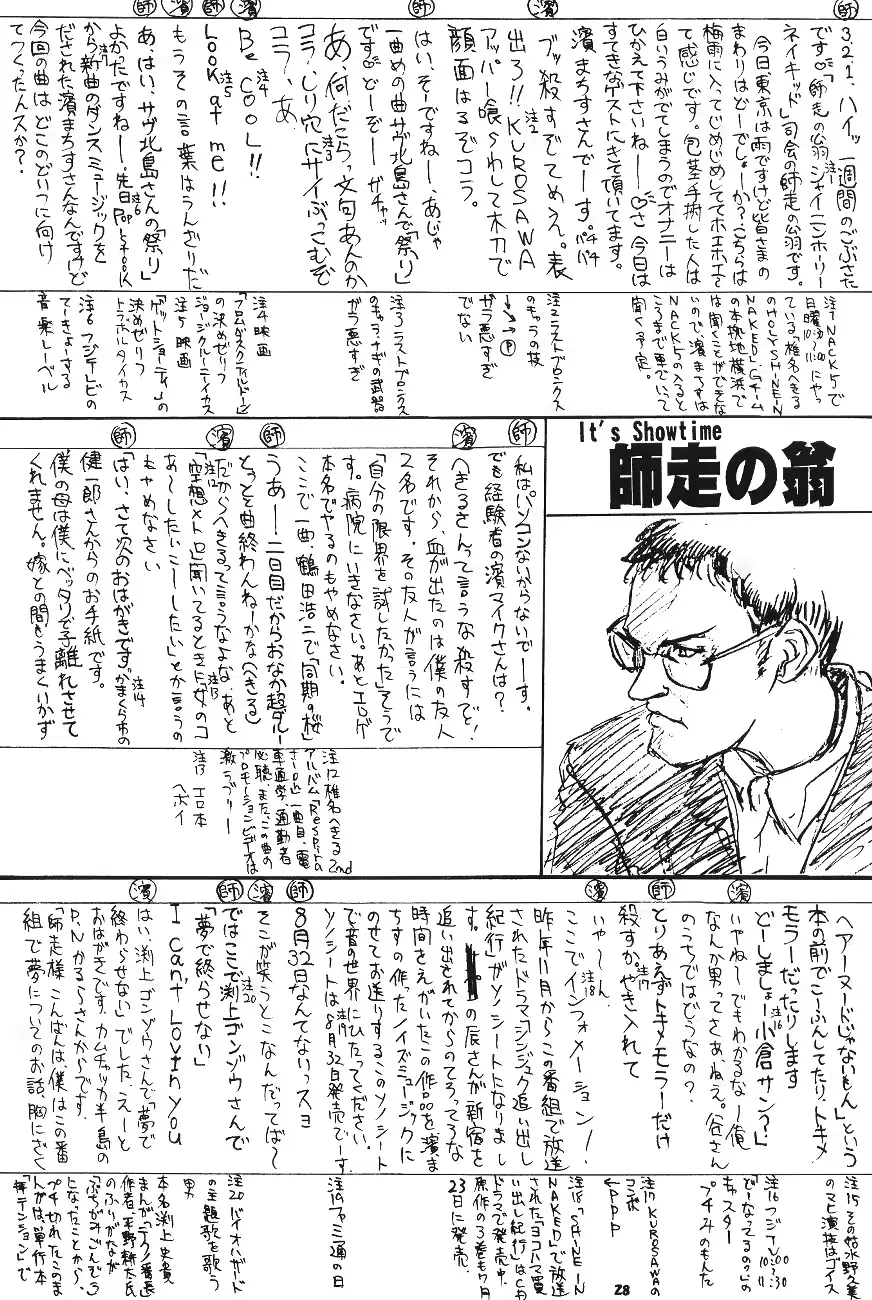 師
3.2.1.ハイッ 一週間のごぶさた
です♡「師走の翁 シャイニンホーリー 注1
ネイキッド」司会の師走の翁です。
今日東京は雨ですけど皆さまの
まわりはどーでしょーか?こちらは
梅雨に入ってじめじめしててホエホエっ
て感じです。包茎手術した人は
白いうみがでてしまうのでオナニーは
ひかえて下さいねー♡さ 今日は
すてきなゲストにきて頂いてます。
濱まちすさんでーす。パチパチ
濱
ブッ殺すぞてめえ。表
出ろ!!KUROSAWA 注2
アッパー喰らわして木刀で
顔面はるぞコラ。
師
はい、そーですねー、あじゃ
一曲めの曲サヴ北島さんで「祭り」
です♡どーぞー ガチャッ
濱
あ、何だこらっ文句あんのか 注3
コラ、しり穴にサイぶっこむぞ
コラ、あ
師
Be COOL!! 注4
濱
Look at me!! 注5
師
もうその言葉はうんざりだ
あ、はい、サヴ北島さんの「祭り」
よかったですねー、先日Pop stock 注6
から新曲のダンスミュージックを
だされた濱まちすさんなんですけど
今回の曲はどこのどいつに向け
てつくったんスか?
注1 NACK5で
日曜10:30~11:00にやっ
ている、椎名へきる
のHOLY SHINE IN
NAKEDし、Gチーム
の本拠地横浜で
は聞くことができな
いので濱まちすは
NACK5の入ると
ころまで車でいって
聞く予定。
注2 ラストブロンクス
のキャラの技
↓↘→Ⓟ
ガラ悪すぎ
でない
注3 ラストブロンクス
のキャラナギの武器
ガラ悪すぎ
注4 映画
「フロムダスクティルドーン」
の決めゼリフ
ジョージクルーニーイカス
注5 映画
「ゲットショーティ」の
決めゼリフ
トラボルタイカス
注6 フジテレビの
てーきょーする
音楽レーベル
It's Showtime
師走の翁
師
私はパソコンないからないでーす。
でも経験者の濱マイクさんは?
濱
へきるさんって言うな殺すぞ!
それから、血が出たのは僕の友人
2名です。その友人が言うには
「自分の限界を試したかった」そうで
す。病院にいきなさい。あとエロゲ
本名でやるのもやめなさい。
ここで一曲、鶴田浩二で「同期の桜」
師
うあー!二日目だからおなか超ダルー
とっとと曲終わんねーかな(へきる)
濱
だからへきるって言うなよな、あと
「空想メトロ」聞いてるときに女のコ 注12
あ~したいこーしたい」とか言うの 注13
もやめなさい
師
「はい、さて次のおはがきです。かまくら市の 注14
健一郎さんからのお手紙です。
僕の母は僕にベッタリで子離れさせて
くれません。嫁との間もうまくいかず
注12 椎名へきる2nd
アルバム「Respirの
さしの」一曲目、電
車通学、通勤者
必聴、また、この曲の
プロモーションビデオは
激ラブリー
注13 エロ本
ヘボイ
ヘアーヌードじゃないもん」という
本の前でこーふんしてたり、トキメ
モラーだったりします
どーしましょー小倉サン?」 注16
濱
いやねーでもわかるなー俺
なんか男ってさぁ、ねえ。谷さん
のうちではどうなの?
師
とりあえずトキメモラーだけ
殺すか。やき入れて 注17
濱
いゃ~ん
ここでインフォメーション! 注18
昨年11月からこの番組で放送
されたドラマ「シンジュク追い出し
紀行」がソノシートになりまし
す。の辰さんが新宿を
追い出されてからのてろってろな
時間をえがいたこの作品を濱ま
ちすの作ったノイズミュージックに
のせてお送りするこのソノシート
で音の世界にひたってください。
ソノシートは8月32日発売でーす 注19
師
8月32日なんてないっスヨ
濱
そこが笑うとこなんだってば~
師
ではここで渕上ゴンゾウさんで 注20
「夢で終らせない」
I can't Lovin you
濱
はい、渕上ゴンゾウさんで「夢で
終わらせない」でした。えーと
おはがきです、カムチャッカ半島の
P.Nかるらさんからです。
「師走様こんばんは僕はこの番
組で夢についてのお話、胸にざく
注15 その姑水野久美
のマヒ演技はゴイス
注16 フジTV 10:00~11:30
「どーなってるの!?」の
キャスター
プチみのもんた
注17 KUROSAWAの
コンボ
←PPP
注18「SHINE IN
NAKED」で放送
された「ヨコハマ買
い出し紀行」はCD
ドラマで発売中、
原作の3巻も7月
23日に発売。
注19 ファミ通の日
注20 バイオハザード
の主題歌を歌う
男
本名渕上史貴
まんが「テクノ番長」
作者、平野耕太氏
のふりがなが
「ふちがみごんぞう」
になったことから、
プチ切れたこのま
んがは、単行本
「拝テンション」で
28